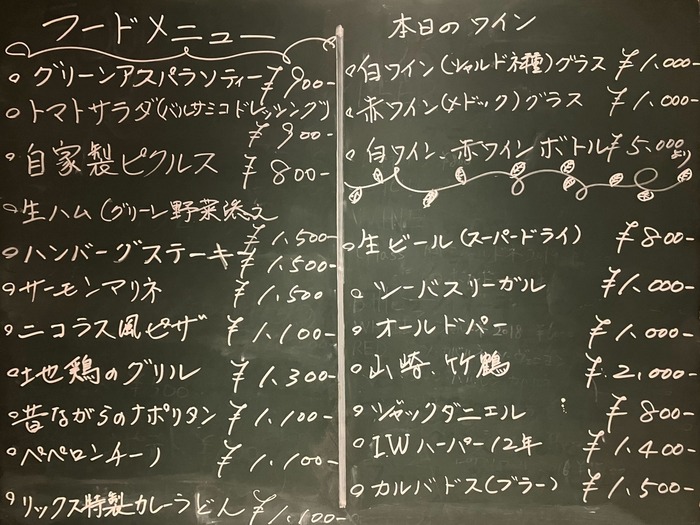 フードメニュー
グリーンアスパラソティー ¥900-
トマトサラダ(バルサミコドレッシング)
¥900-
自家製ピクルス ¥800-
生ハム(グリーン野菜添え
¥1,500-
ハンバーグステーキー ¥1,500-
サーモンマリネ ¥1,500
ニコラス風ピザ ¥1,100-
地鶏のグリル ¥1,300-
昔ながらのナポリタン ¥1,100-
ペペロンチーノ ¥1,100-
リックス特製カレーうどん ¥1,100-
本日のワイン
白ワイン(シャルドネ種)グラス ¥1,000-
赤ワイン(メドック)グラス ¥1,000-
白ワイン、赤ワインボトル ¥5,000より
生ビール(スーパードライ) ¥800-
シーバスリーガル ¥1,000-
オールドパー ¥1,000-
山崎、竹鶴 ¥2,000-
ジャックダニエル ¥800-
I.Wハーパー12年 ¥1,400-
カルバドス(ブラー) ¥1,500-